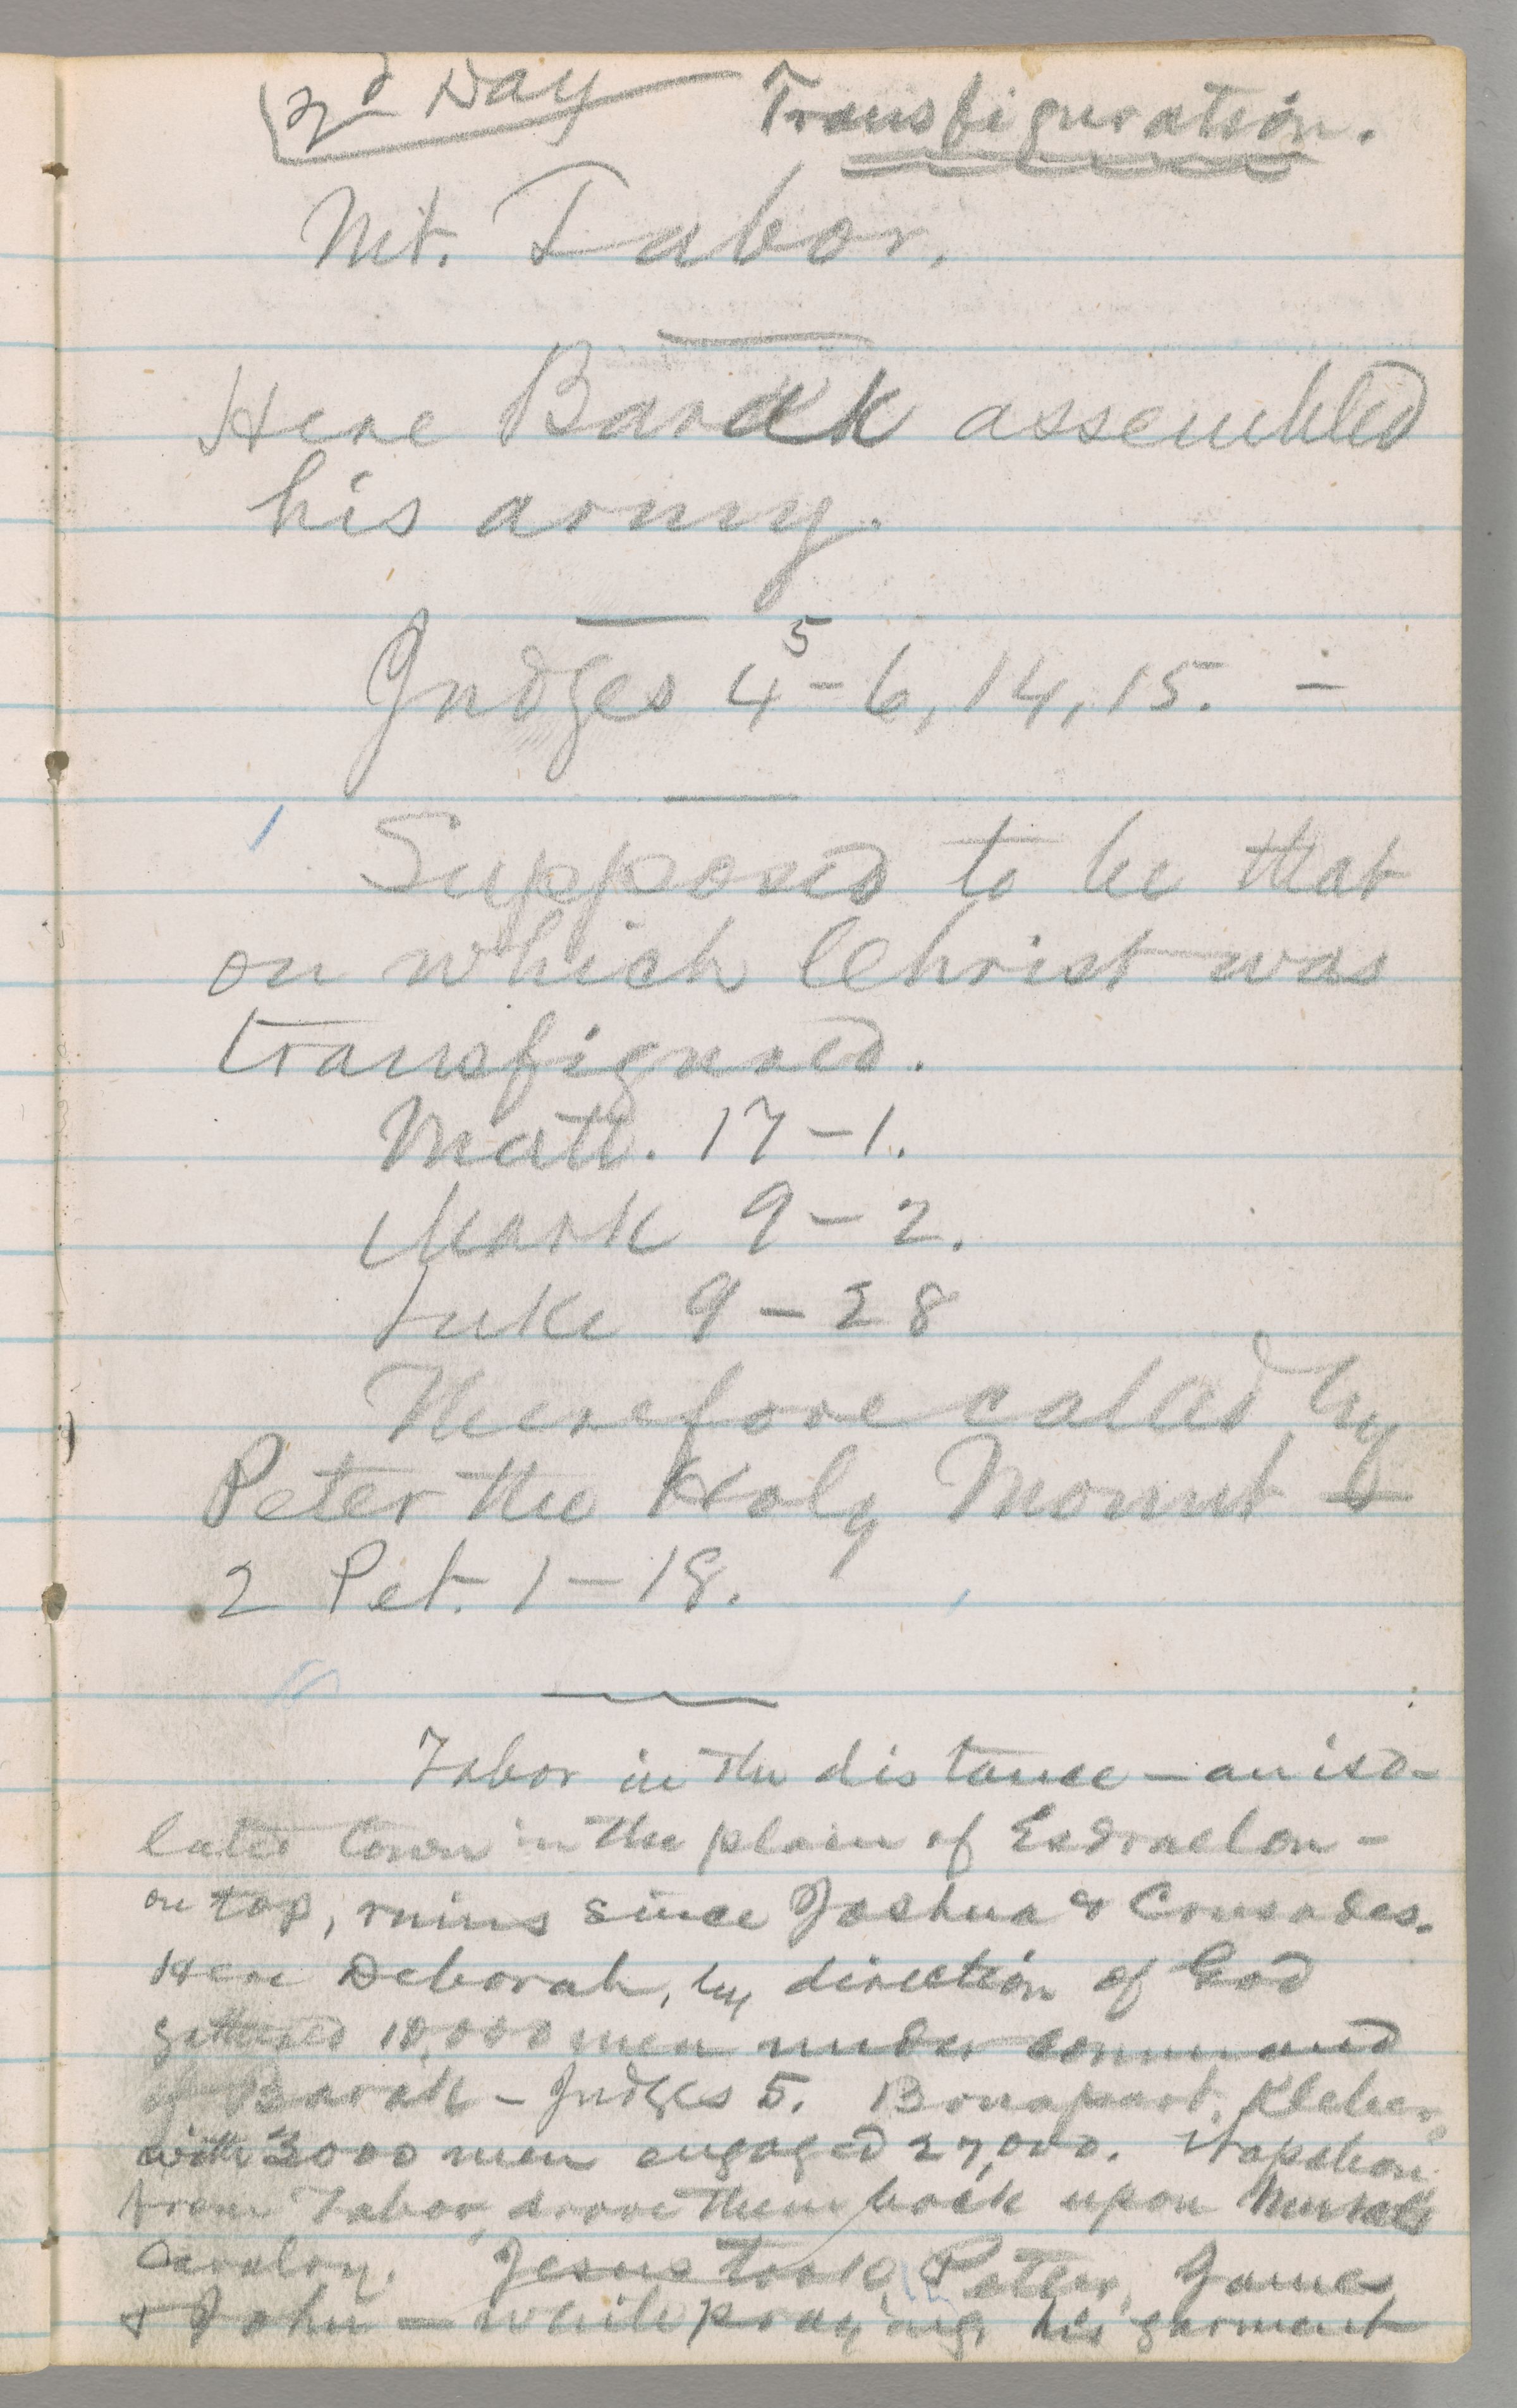 2d Day Transfiguration.
Mt. Tabor.
Here Barak assembled
his army.
5
Judges 4 - 6, 14, 15. -
Supposed to be that
on which Christ was
transfigured.
Matt. 17 - 1.
Mark 9 - 2.
Luke 9 - 28
Therefore called by
Peter the Holy Mount -
2 Pet. 1 - 18.
Tabor in the distance - an iso-
lated town in the plain of Esdraelon -
on top, ruins since Joshua & Crusades.
Here Deborah, by direction of God
gathered 10,000 men under command
of Barak - Judges 5. Bonapart. Kleber,
with 3000 men engaged 27,000. Napoleon
from Tabor drove them back upon Murat's
Cavalry. Jesus took Peter, James
& John - while praying, his garment